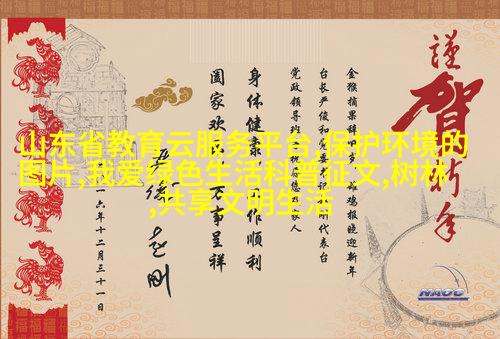 山东省教育云服务平台,保护环境的
图片,我爱绿色生活科普征文,树林
,共享文明生活
謹賀新年
金猴摘果辞 岁 鸡报晓迎新年
台长严俊和党委 记 刚代表台
党政领导班 祝 您 家人
身体健康 工作顺利
阖家欢 万事呈祥
一六年十二月三十一日
NAOC